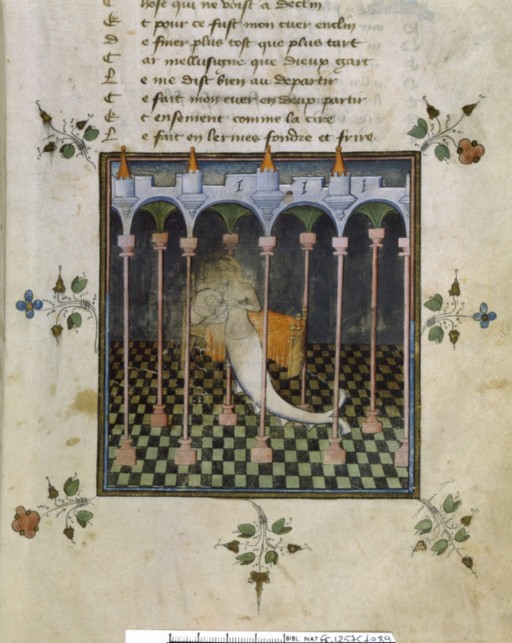 hose qui ne voist a declin
E t pour ce fust mon cuer enclin
D e finer plus tost que plus tart
C ar mellusigne que dieux gart
L e me dist bien au departir
C e fait mon cuer en deux partir
E t ensement comme la cire
L e fait en lermes fondre et frire
BIBL NAT Fr. 12575 f. 089